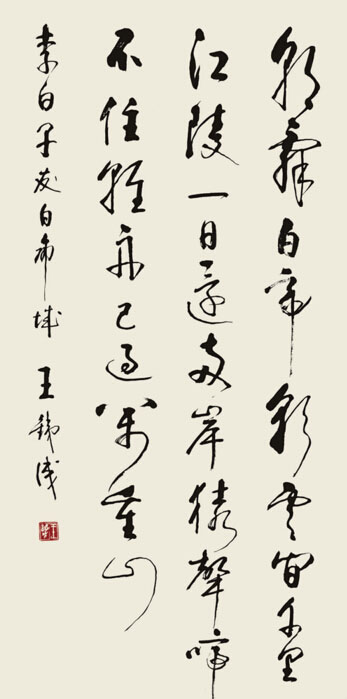 朝辭白帝彩雲間千里
江陵一日還兩岸猿聲啼
不住輕舟已過萬重山
李白早發白帝城 王